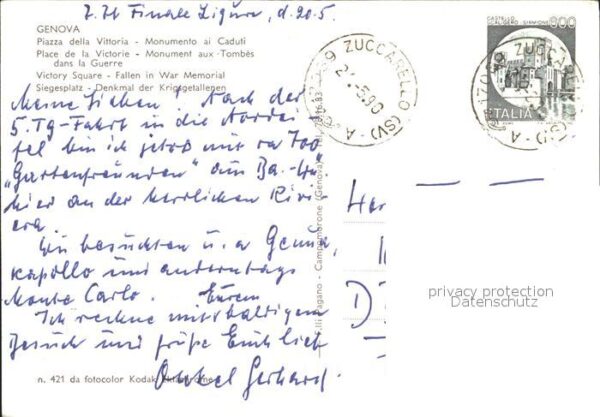 z. Zt Finale Ligure, d. 20.5.
GENOVA
Piazza della Vittoria - Monumento ai Caduti
Place de la Victorie - Monument aux Tombès
dans la Guerre
Victory Square - Fallen in War Memorial
Siegesplatz - Denkmal der Kriegetallenen
Meine Lieben! Nach der
5. Tg-Fahrt in die
bin ich jetzt mit ca 700
"Gartenfreunden" aus Ba.-Wü
hier an der herrlichen Rivi-
era.
Wir besuchten u. a Genua,
Rapallo und anderntags
Monte Carlo. Eurem
Ich rechne mit baldigem
Besuch und grüße Euch lieb
Onkel Gerhard.
n. 421 da fotocolor Kodak Ektachrome
F.lli Pagano - Campomorone (Genova)
17039 ZUCCARELLO (SV)
CASTELLO
SCALIGERO - SIRMIONE
800
ITALIA
17039 ZUCCARELLO (SV)
D
privacy protection
Datenschutz